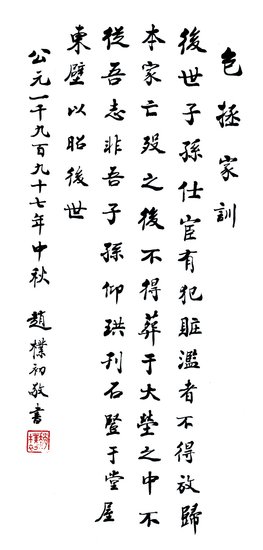 包拯家訓
後世子孫仕宦有犯贓濫者不得放歸
本家亡殁之後不得葬于大塋之中不
從吾志非吾子孫仰珙刊石豎于堂屋
東壁以昭後世
公元一千九百九十七年中秋 趙樸初敬書